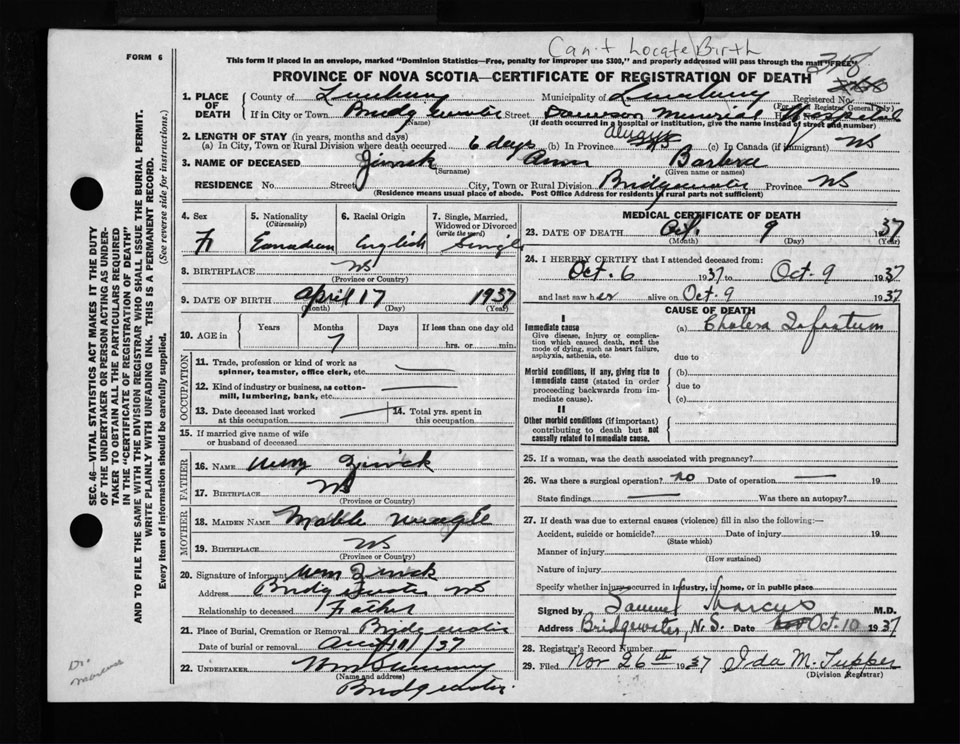 Can't Locate Birth
FORM 6
This form if placed in an envelope, marked "Dominion Statistics—Free, penalty for improper use $300," and properly addressed will pass through the mail "FREE"
PROVINCE OF NOVA SCOTIA—CERTIFICATE OF REGISTRATION OF DEATH
1. PLACE OF DEATH
County of Lunenburg Municipality of Lunenburg Registered No.
(For use of Registrar General only)
If in City or Town Bridgewater Street Dawson Memorial Hospital
(Name) (If death occurred in a hospital or institution, give the name instead of street and number)
2. LENGTH OF STAY (in years, months and days)
(a) In City, Town or Rural Division where death occurred 6 days (b) In Province always (c) In Canada (if immigrant) NS
3. NAME OF DECEASED Zinck Ann Barbera
(Surname) (Given name or names)
RESIDENCE No. Street City, Town or Rural Division Bridgewater Province NS
(Residence means usual place of abode. Post Office Address for Residents in rural parts not sufficient)
4. Sex F
5. Nationality (Citizenship) Canadian
6. Racial Origin English
7. Single, Married, Widowed or Divorced (write the word) Single
8. BIRTHPLACE NS
(Province or Country)
9. DATE OF BIRTH April 17 1937
(Month) (Day) (Year)
10. AGE in Years Months 7 Days If less than one day old hrs. or min.
OCCUPATION
11. Trade, profession or kind of work as spinner, teamster, office clerk, etc.
12. Kind of industry or business, as cotton-mill, lumbering, bank, etc.
13. Date deceased last worked at this occupation
14. Total yrs. spent in this occupation
15. If married give name of wife or husband of deceased
FATHER
16. NAME Zinck
17. BIRTHPLACE NS
(Province or Country)
MOTHER
18. MAIDEN NAME Mable
19. BIRTHPLACE NS
(Province or Country)
20. Signature of informant Wm Zinck
Address Bridgewater NS
Relationship to deceased Father
21. Place of Burial, Cremation or Removal Bridgewater
Date of burial or removal 11/37
22. UNDERTAKER Wm
(Name and address)
Bridgewater.
MEDICAL CERTIFICATE OF DEATH
23. DATE OF DEATH Oct. 9 1937
(Month) (Day) (Year)
24. I HEREBY CERTIFY that I attended deceased from:
Oct. 6 1937 to Oct 9 1937
and last saw her alive on Oct. 9 1937
CAUSE OF DEATH
I
Immediate cause (a) Cholera Infantum
Give disease, injury or complication which caused death, not the mode of dying, such as heart failure, asphyxia, asthenia, etc.
due to
Morbid conditions, if any, giving rise to immediate cause (stated in order proceeding backwards from immediate cause).
(b)
due to
(c)
II
Other morbid conditions (if important) contributing to death but not causally related to immediate cause.
25. If a woman, was the death associated with pregnancy?
26. Was there a surgical operation? no Date of operation 19
State findings Was there an autopsy?
27. If death was due to external causes (violence) fill in also the following:—
Accident, suicide or homicide? Date of injury 19
(State which)
Manner of injury
(How sustained)
Nature of injury
Specify whether injury occurred in industry, in home, or in public place
Signed by Samuel Marcus M.D.
Address Bridgewater, N.S. Date Oct. 10 1937
28. Registrar's Record Number
29. Filed Nov 26th 1937 Ida M. Tupper
(Division Registrar)
SEC. 46—VITAL STATISTICS ACT MAKES IT THE DUTY
OF THE UNDERTAKER OR PERSON ACTING AS UNDERTAKER TO OBTAIN ALL THE PARTICULARS REQUIRED
IN THE "CERTIFICATE OF REGISTRATION OF DEATH"
AND TO FILE THE SAME WITH THE DIVISION REGISTRAR WHO SHALL ISSUE THE BURIAL PERMIT.
WRITE PLAINLY WITH UNFADING INK. THIS IS A PERMANENT RECORD.
Every item of information should be carefully supplied. (See reverse side for instructions.)
Dr.